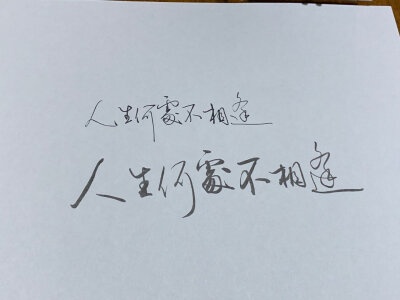 人生何處不相逢
人生何處不相逢